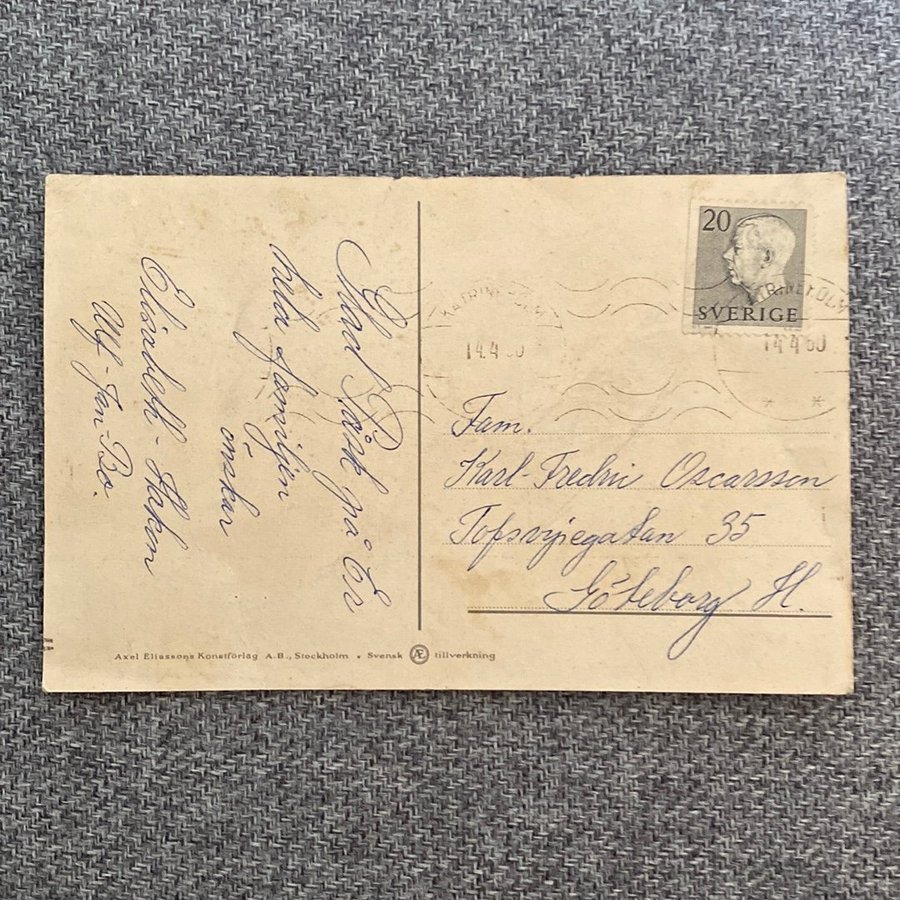 Glad Påsk på Er
hela familjen
önskar
Elisabeth - Håkon
Ulf - Jan-Bo.
20
SVERIGE
KATRINEHOLM
14.4.60
KATRINEHOLM
14.4.60
Fam.
Karl-Fredrik Oscarsson
Tofsvipegatan 35
Göteborg H.
Axel Eliassons Konstförlag A.B., Stockholm • Svensk Æ tillverkning